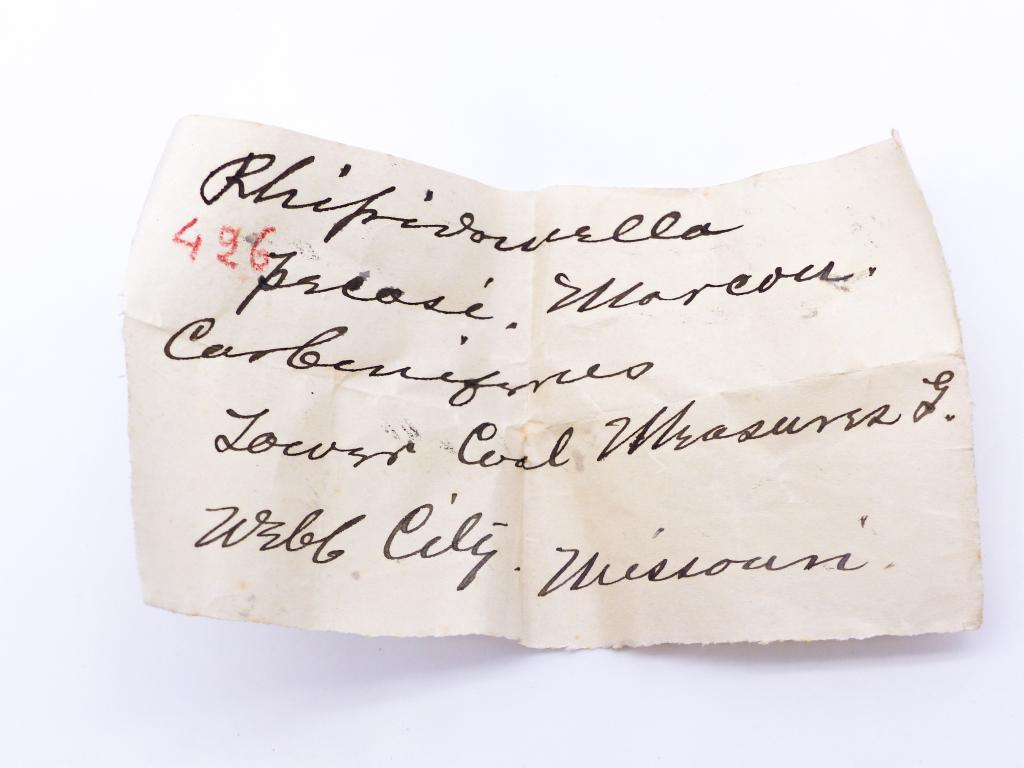 Rhipidomella
426
pecosi. Marcou.
Carboniferous
Lower Coal Measures G.
Webb City. Missouri.